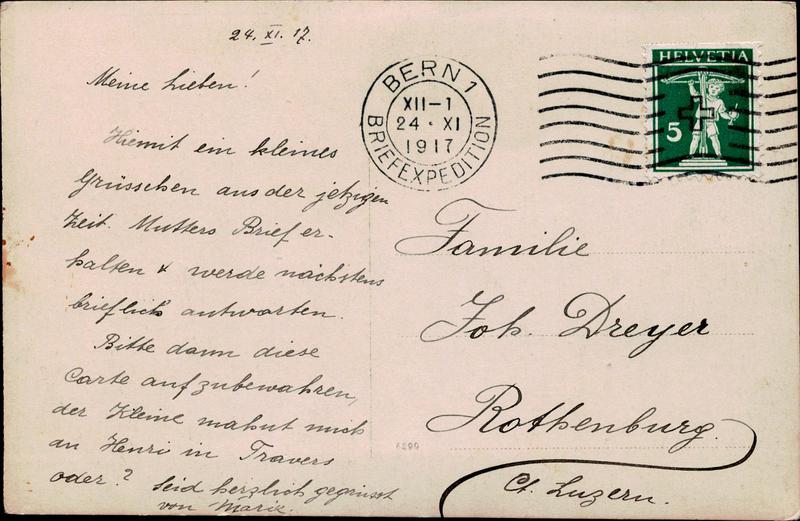 24. XI. 17.
Meine Lieben!
Hiemit ein kleines
Grüsschen aus der jetzigen
Zeit. Mutters Brief er-
halten & werde nächstens
brieflich antworten.
Bitte dann diese
Carte aufzubewahren,
der Kleine mahnt mich
an Henri in Travers
oder? Seid herzlich gegrüsst
von Marie.
BERN 1
BRIEFEXPEDITION
XII–1
24 · XI
1917
HELVETIA
5
Familie
Joh. Dreyer
Rothenburg.
Ct. Luzern.
6299